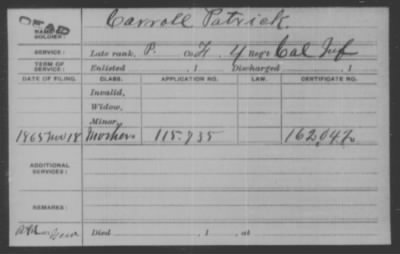 DEAD
NAME OF SOLDIER: Carroll Patrick.
SERVICE: Late rank, P. Co. H, 4 Reg't Cal Inf
TERM OF SERVICE: Enlisted , 1 Discharged , 1
DATE OF FILING. CLASS. APPLICATION NO. LAW. CERTIFICATE NO.
Invalid,
Widow,
Minor,
1865 Nov 18 Mothers 115.935 162,047
ADDITIONAL SERVICES:
REMARKS:
Died , 1 , at